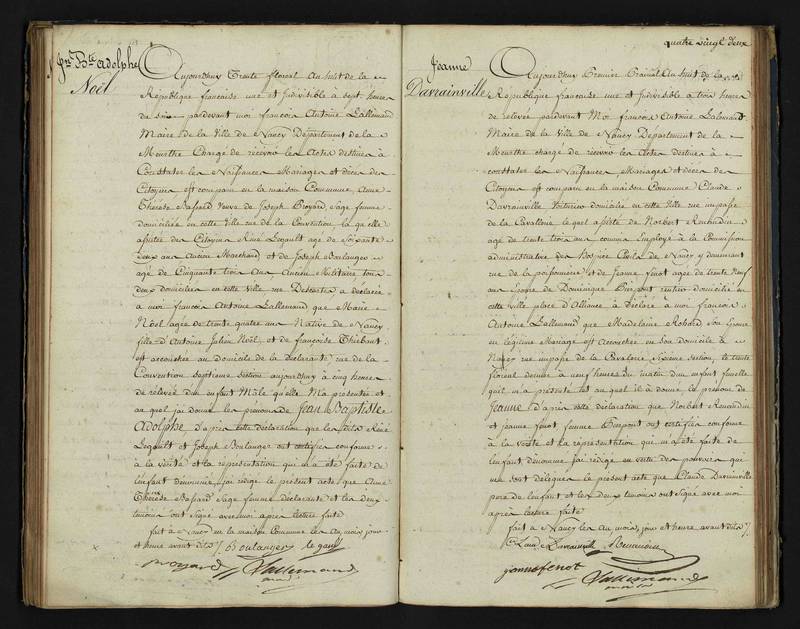 Jn Bte adolphe
Noël
Aujourdhuy Trente floreal An huit de la
République francaise une et Indivisible à sept heures
de soir pardevant moi francois Antoine Lallemand
Maire de la Ville de Nancy Département de la
Meurthe Chargé de recevoir les Actes destinés à
Constater les Naissances Mariages et décès des
Citoyens est comparu en la maison Commune, Anne
Thérèse Bassard veuve de Joseph Proyard Sage femme
domiciliée en cette Ville rue de la Convention, la quelle
assistée des Citoyens René Legault age de Soixante
deux ans Ancien Marchand et de Joseph Boulanger
agé de Cinquante trois ans Ancien Militaire tous
deux domiciliés en cette Ville rue Descartes a déclaré
à moi francois Antoine Lallemand que Marie
Noël agée de trente quatre ans Native de Nancy
fille d'Antoine Julien Noël, et de francoise Thiebaut
est accouchée au domicile de la déclarante rue de la
Convention septieme section aujourdhuy à cinq heures
de relevée d'un enfant Mâle qu'elle M'a présenté et
au quel j'ai donné les prenoms de Jean Baptiste
Adolphe, d'après cette déclaration que les dits René
Legault et Joseph Boulanger ont certifié conforme
à la vérité et la représentation qui m'a été faite de
l'enfant dénommé, j'ai rédigé le present acte que Anne
Thérèse Bassard Sage femme déclarante et les deux
témoins ont Signé avec moi après lecture faite
fait à Nancy en la maison Commune les an, mois, jour
et heure avant dits /. Boulanger le gault
proyard Lallemand
maire
quatre vingt deux
Jeanne
Davrainville
Aujourdhuy Premier Prairial An huit de la
République francaise une et Indivisible à trois heures
de relevée pardevant Moi francois Antoine Lallemand
Maire de la Ville de Nancy Département de la
Meurthe chargé de recevoir les Actes destinés à
constater les Naissances Mariages et décès des
Citoyens est comparu en la maison Commune Claude
Davrainville Voiturier domicilié en cette Ville rue impasse
de la Cavallerie le quel assisté de Norbert
agé de trente trois ans commis Employé à la Commission
administrative des hospices Civils de Nancy y demeurant
rue de la poissonnerie et de Jeanne finot agée de trente Neuf
ans Epouse de Dominique rentier domicilié en
cette Ville place d'Alliance à déclaré à moi francois
Antoine Lallemand que Madelaine Son Epouse
en légitime Mariage est accouchée en son domicile à
Nancy rue impasse de la Cavalerie Sixieme section, le trente
floreal dernier à neuf heures du matin d'un enfant femelle
qu'il m'a présenté et au quel il à donné le prenom de
Jeanne D'après cette déclaration que Norbert
et jeanne finot femme ont certifié conforme
à la vérité et la réprésentation qui m'a été faite de
l'enfant dénommé j'ai rédigé en vertu des pouvoirs qui
me sont délégués le présent acte que Claude Davrainville
pere de l'enfant et les deux temoins ont Signé avec moi
après lecture faite
fait à Nancy les an, mois, jour et heure avant dits /.
Claude Davrainville
jeanne fenot Lallemand
maire